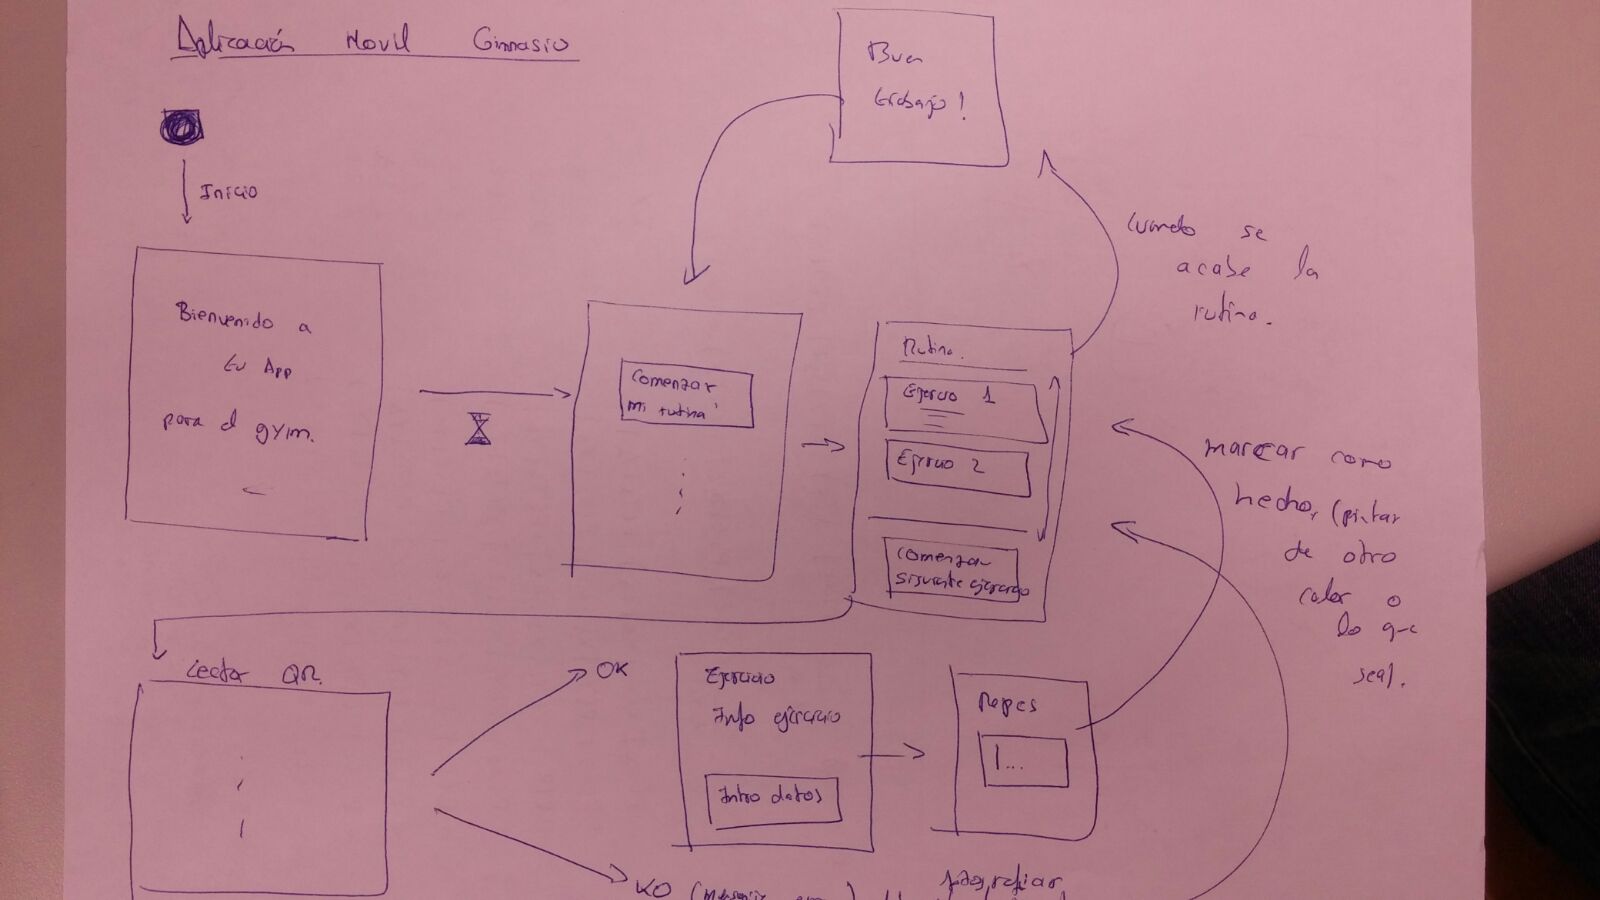 Aplicación Movil Gimnasio
Inicio
Bienvenido a
tu App
para el gym.
Buen
trabajo!
Cuando se
acabe la
rutina.
Comenzar
mi rutina
Rutina.
Ejercicio 1
Ejercicio 2
Comenzar
siguiente ejercicio
marcar como
hecho, (pintar
de otro
color o
lo que
sea).
Lector QR.
OK
Ejercicio
Info ejercicio
Intro datos
Repes
|...
KO (